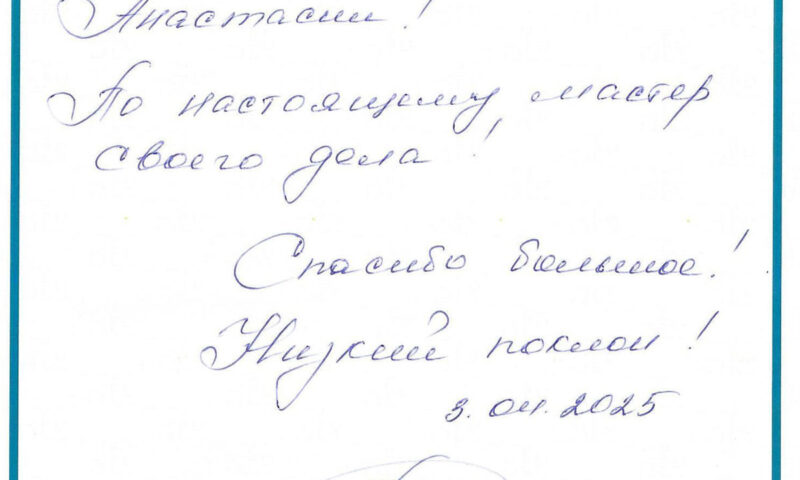 Анастасии!
По настоящему, мастер
своего дела!
Спасибо большое!
Низкий поклон!
3.04.2025